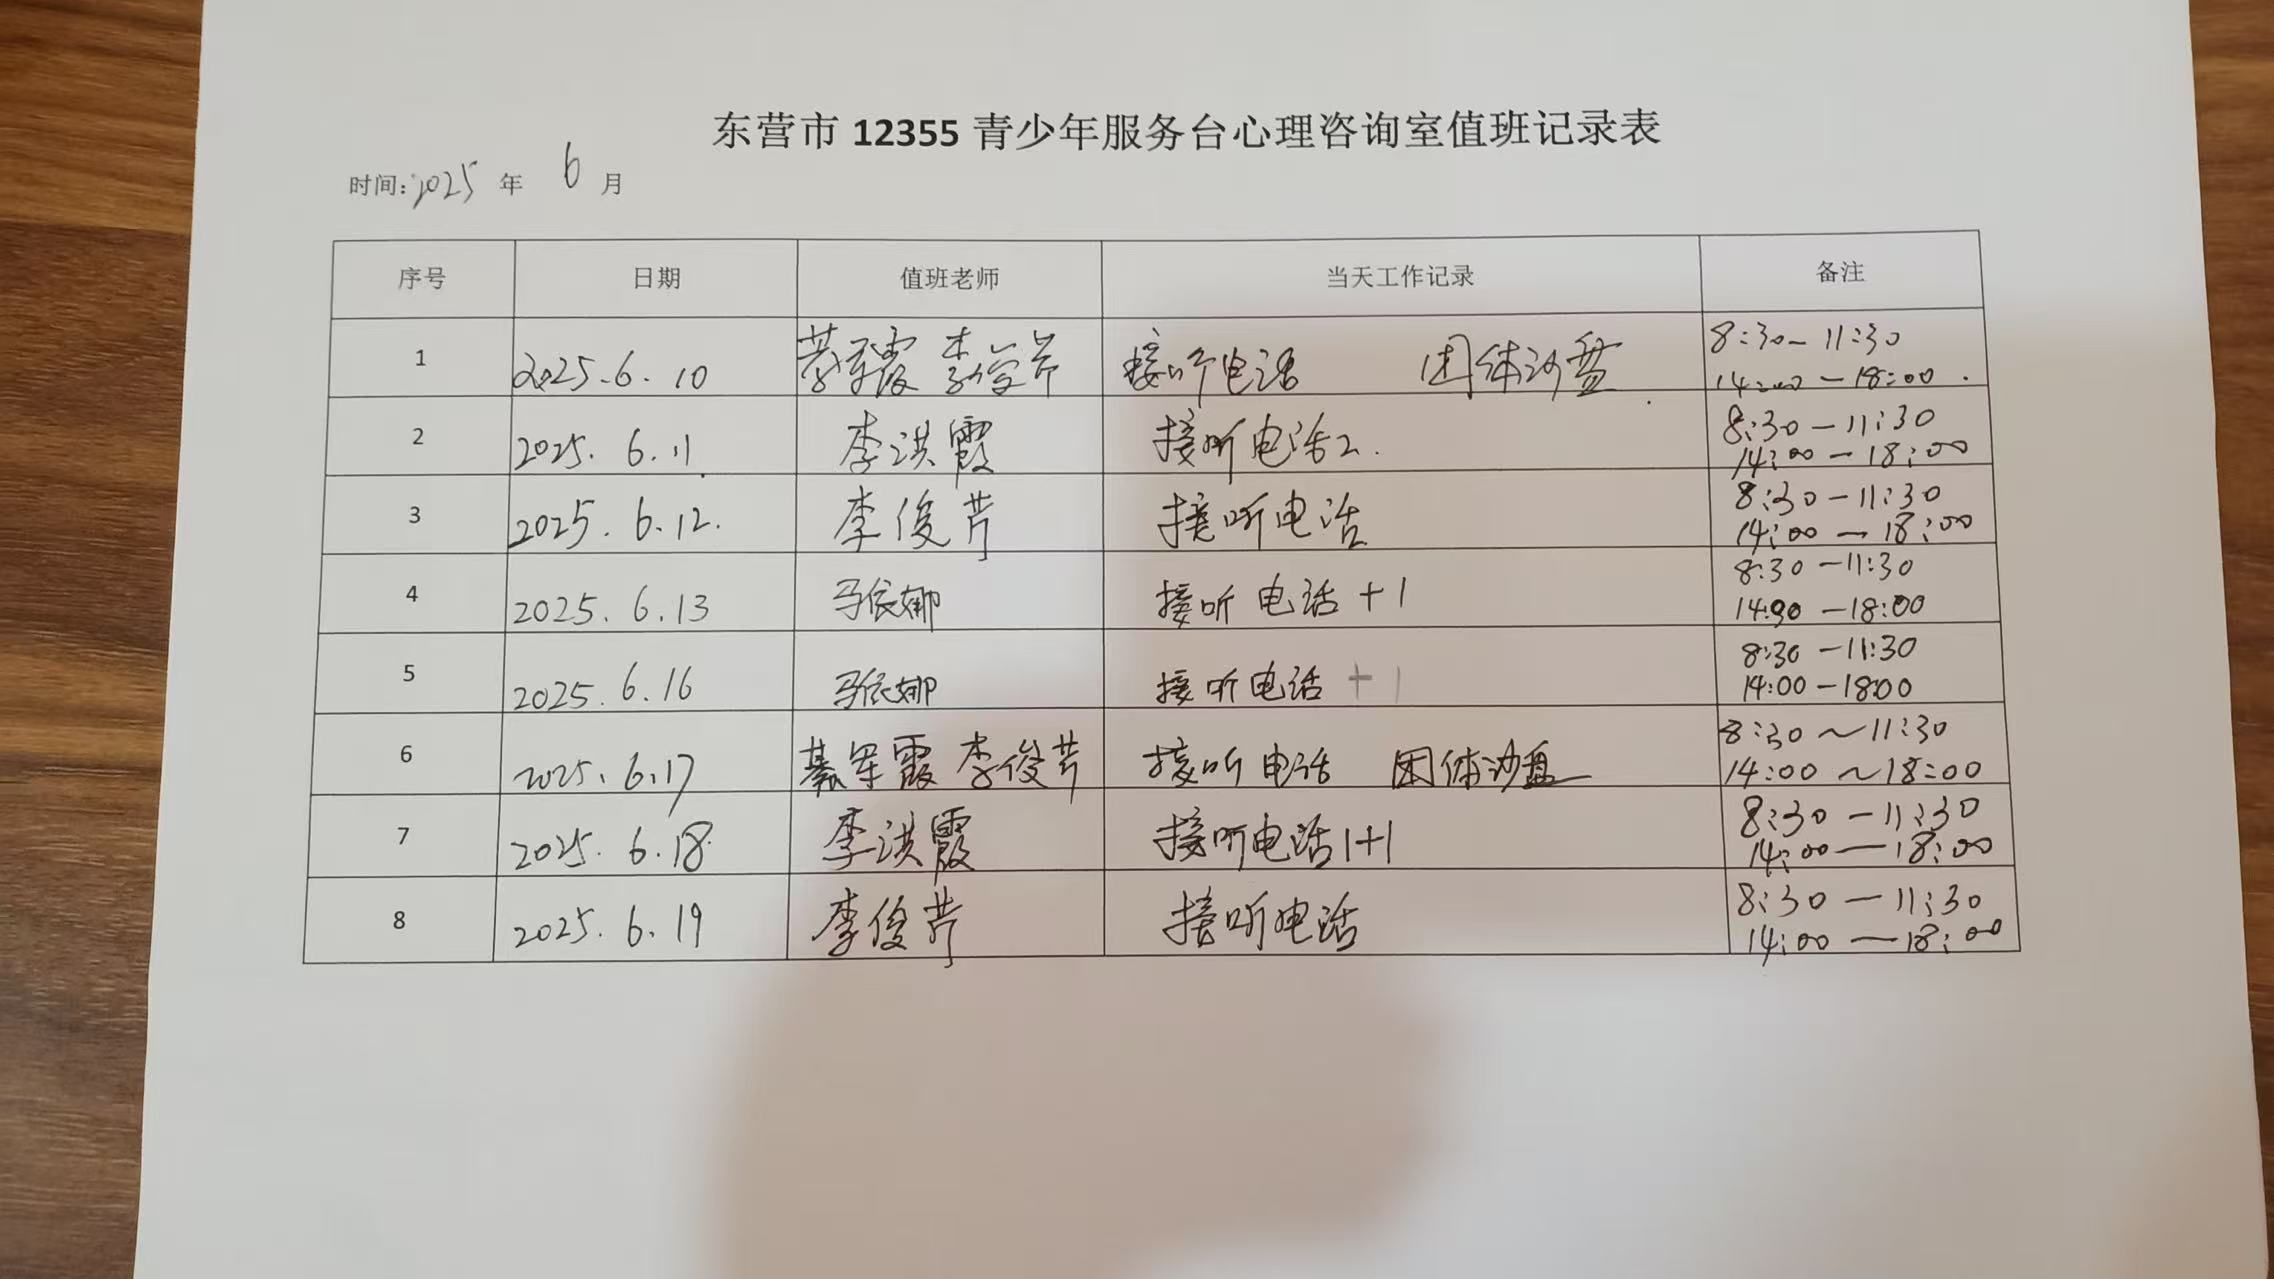 东营市 12355 青少年服务台心理咨询室值班记录表
时间:2025 年 6 月
序号 日期 值班老师 当天工作记录 备注
1 2025.6.10 綦军霞 李俊芹 接听电话 团体沙盘 8:30-11:30
14:00-18:00.
2 2025.6.11 李洪霞 接听电话2. 8:30-11:30
14:00-18:00
3 2025.6.12. 李俊芹 接听电话 8:30-11:30
14:00-18:00
4 2025.6.13 马依娜 接听电话+1 8:30-11:30
14:00-18:00
5 2025.6.16 马依娜 接听电话+1 8:30-11:30
14:00-18:00
6 2025.6.17 綦军霞 李俊芹 接听电话 团体沙盘 8:30~11:30
14:00~18:00
7 2025.6.18 李洪霞 接听电话1+1 8:30-11:30
14:00-18:00
8 2025.6.19 李俊芹 接听电话 8:30-11:30
14:00-18:00